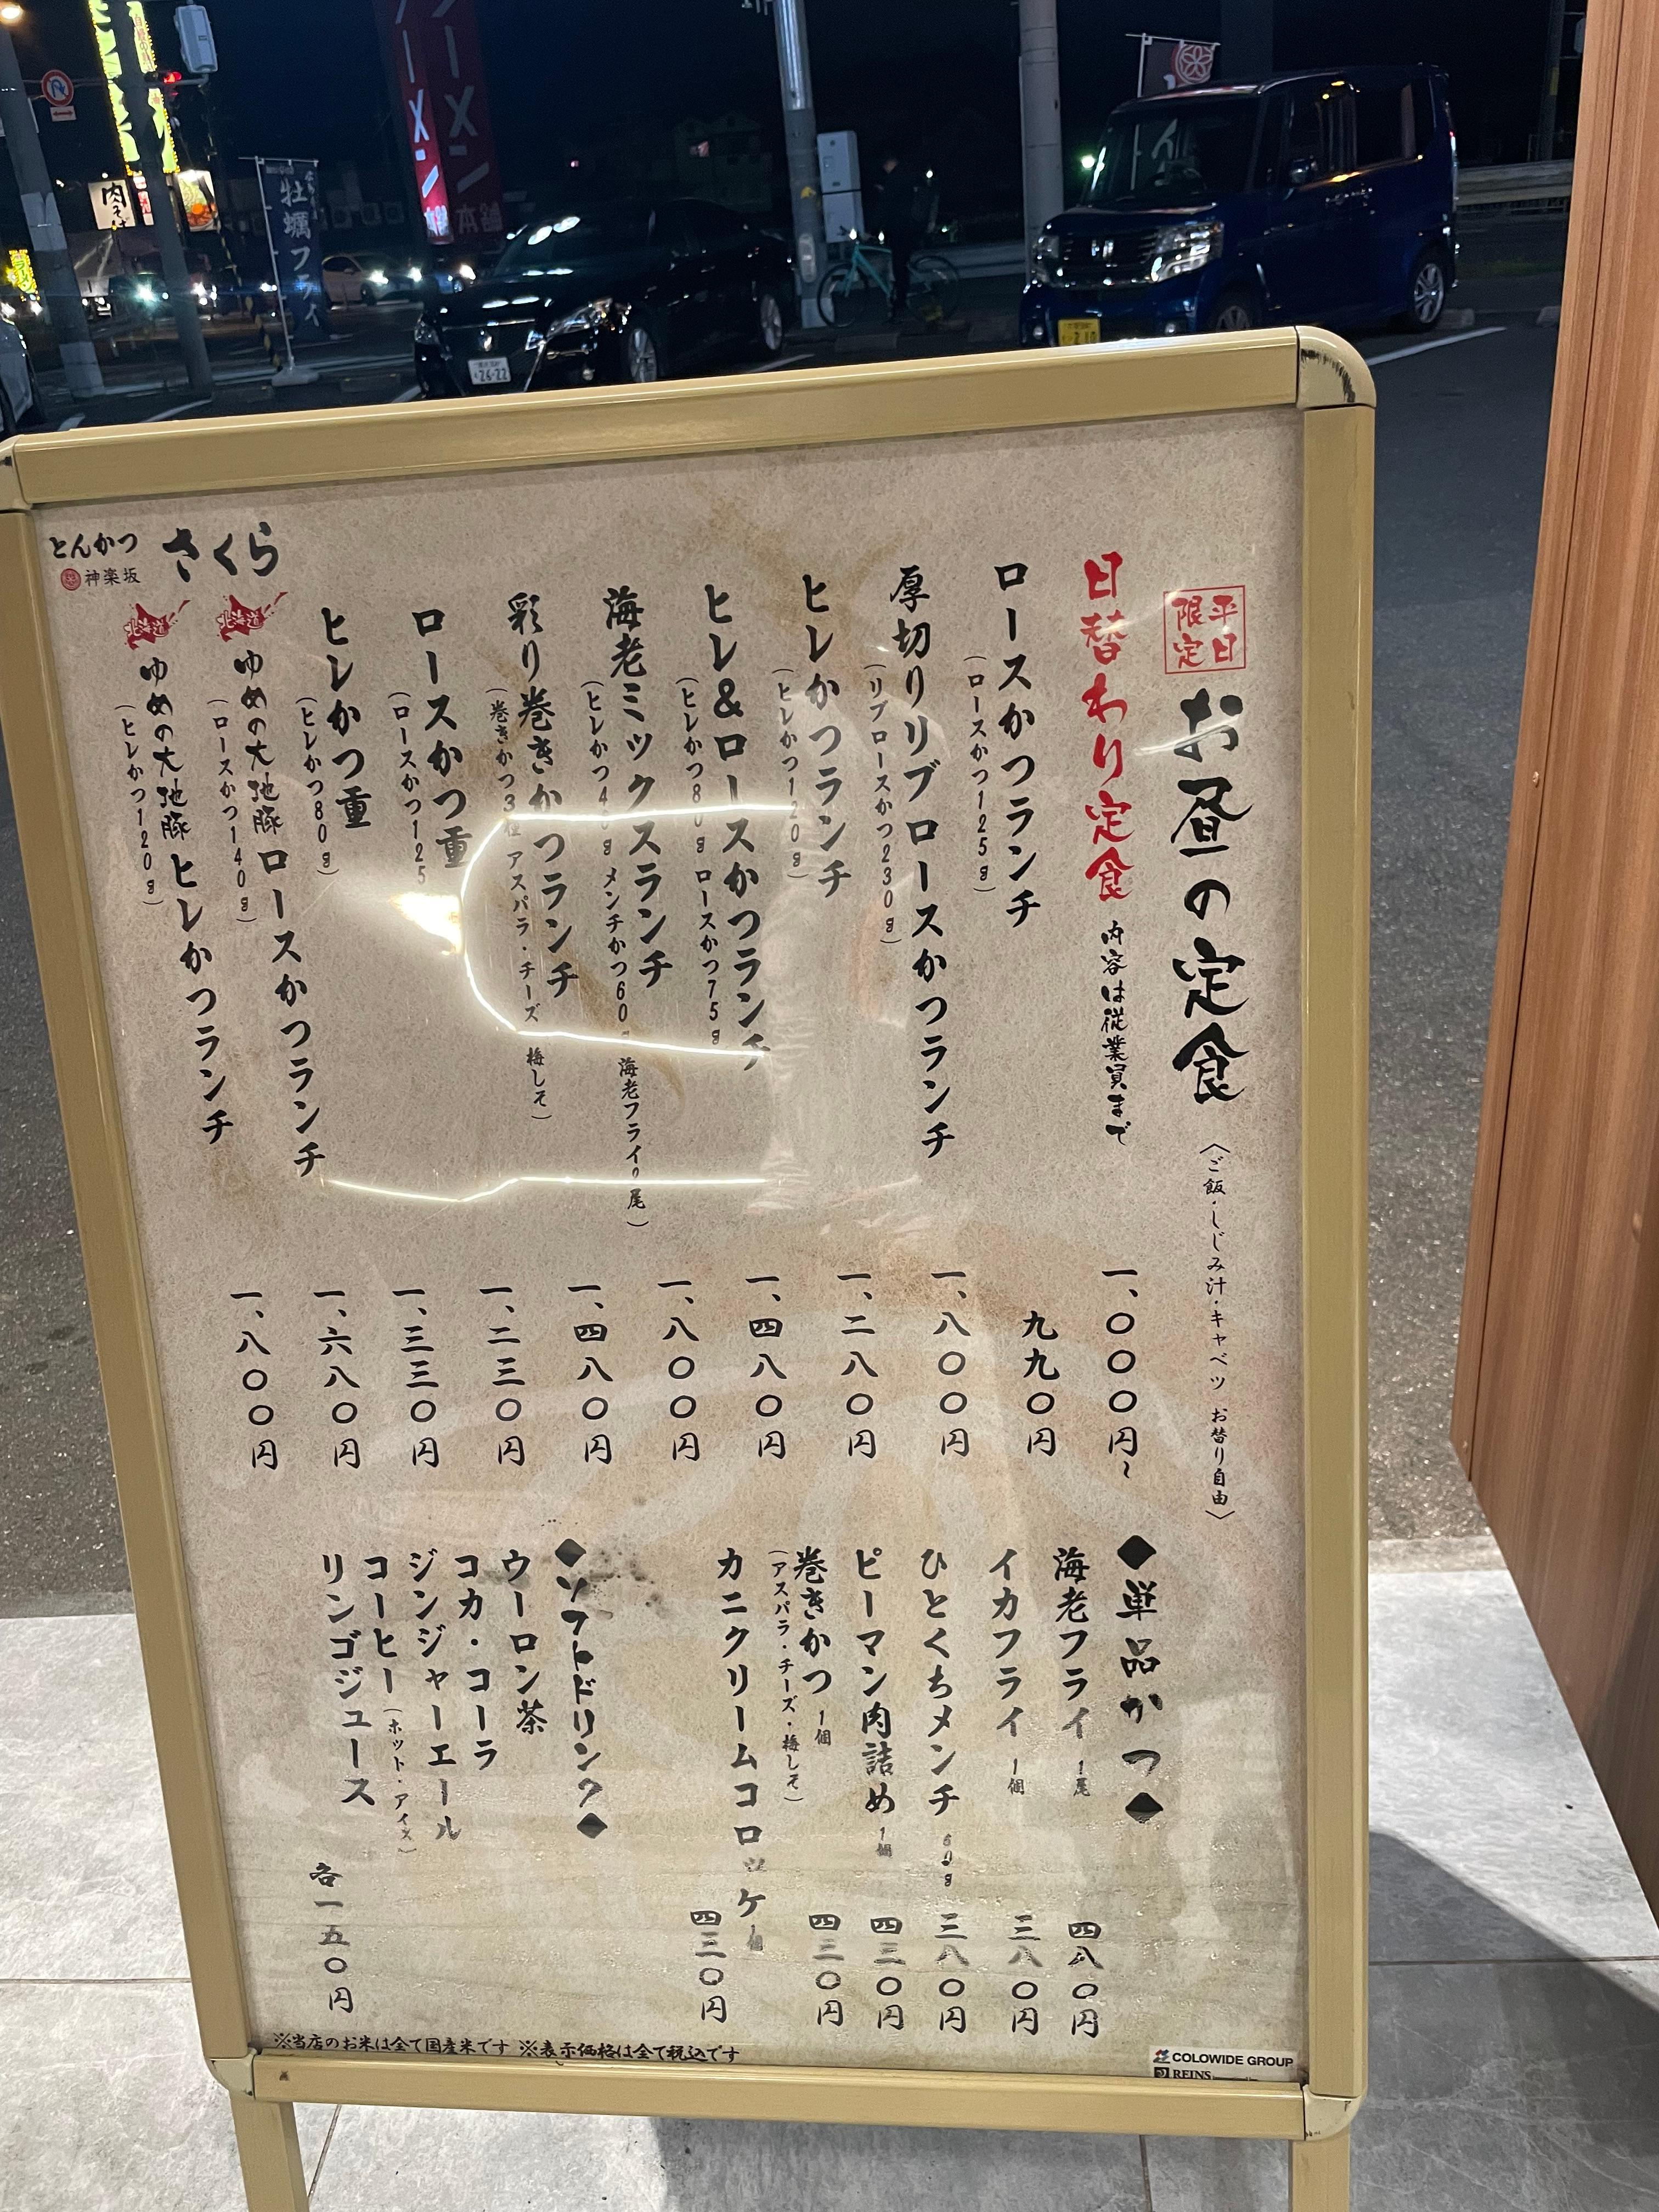 平日
限定
お昼の定食
〈ご飯・しじみ汁・キャベツ お替り自由〉
日替わり定食 内容は従業員まで
一、〇〇〇円~
ロースかつランチ
(ロースかつ125g)
九九〇円
厚切りリブロースかつランチ
(リブロースかつ230g)
一、八〇〇円
ヒレかつランチ
(ヒレかつ120g)
一、二八〇円
ヒレ&ロースかつランチ
(ヒレかつ80g ロースかつ75g)
一、四八〇円
海老ミックスランチ
(ヒレかつ40g メンチかつ60g 海老フライ 尾)
一、八〇〇円
彩り巻きかつランチ
(巻きかつ3種 アスパラ・チーズ 梅しそ)
一、四八〇円
ロースかつ重
(ロースかつ125
一、二三〇円
ヒレかつ重
(ヒレかつ80g)
一、三三〇円
北海道 ゆめの大地豚 ロースかつランチ
(ロースかつ140g)
一、六八〇円
北海道 ゆめの大地豚 ヒレかつランチ
(ヒレかつ120g)
一、八〇〇円
とんかつ
神楽坂
さくら
◆単品かつ◆
海老フライ 1尾 四八〇円
イカフライ 1個 三八〇円
ひとくちメンチ 60g 三八〇円
ピーマン肉詰め 1個 四三〇円
巻きかつ 1個 四三〇円
(アスパラ・チーズ・梅しそ)
カニクリームコロッケ 1個 四三〇円
◆ソフトドリンク◆
ウーロン茶
コカ・コーラ
ジンジャーエール
コーヒー(ホット・アイス)
リンゴジュース
各一五〇円
※当店のお米は全て国産米です ※表示価格は全て税込です
COLOWIDE GROUP
REINS
肉そば
牡蠣フライ
ラーメン
本舗
26-22